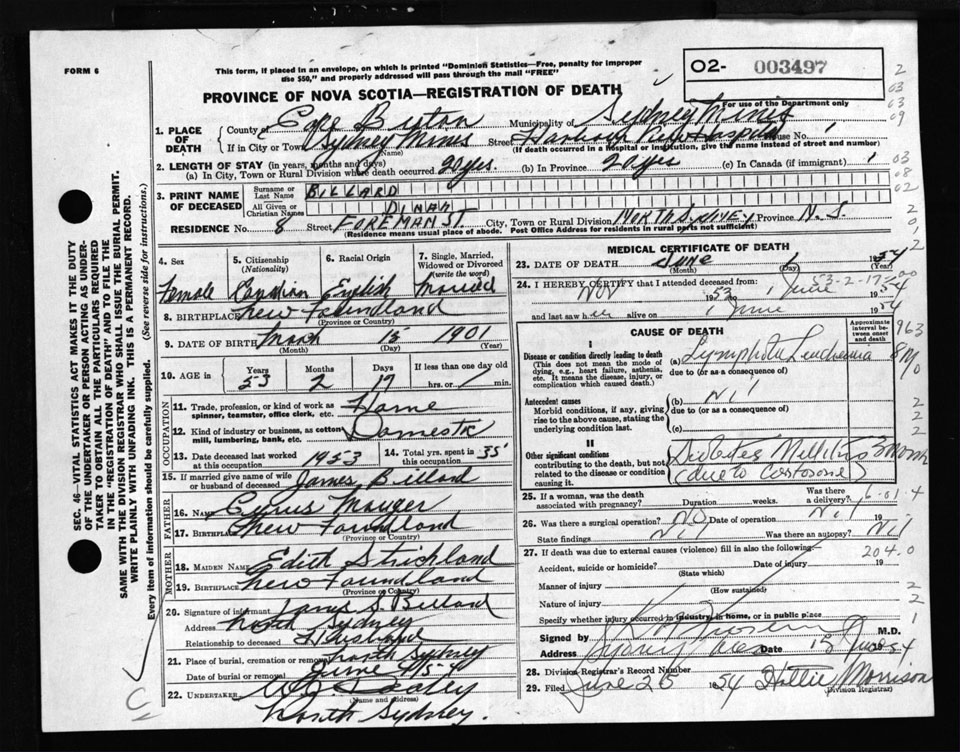 FORM 6
This form, if placed in an envelope, on which is printed "Dominion Statistics—Free, penalty for improper use $50," and properly addressed will pass through the mail "FREE"
O2- 003497
For use of the Department only
PROVINCE OF NOVA SCOTIA—REGISTRATION OF DEATH
SEC. 46—VITAL STATISTICS ACT MAKES IT THE DUTY OF THE UNDERTAKER OR PERSON ACTING AS UNDERTAKER TO OBTAIN ALL THE PARTICULARS REQUIRED IN THE "REGISTRATION OF DEATH" AND TO FILE THE SAME WITH THE DIVISION REGISTRAR WHO SHALL ISSUE THE BURIAL PERMIT.
WRITE PLAINLY WITH UNFADING INK. THIS IS A PERMANENT RECORD.
Every item of information should be carefully supplied. (See reverse side for instructions.)
1. PLACE OF DEATH County of Cape Breton Municipality of Sydney Mines
If in City or Town Sydney Mines (Name) Street Harbour View Hospital House No.
(If death occurred in a hospital or institution, give the name instead of street and number)
2. LENGTH OF STAY (in years, months and days)
(a) In City, Town or Rural Division where death occurred 20 yrs. (b) In Province 20 yrs (c) In Canada (if immigrant)
3. PRINT NAME OF DECEASED Surname or Last Name BILLARD
All Given or Christian Names DINAH
RESIDENCE No. 8 Street FOREMAN ST City, Town or Rural Division NORTH SYDNEY Province N.S.
(Residence means usual place of abode. Post Office Address for residents in rural parts not sufficient)
4. Sex Female
5. Citizenship (Nationality) Canadian
6. Racial Origin English
7. Single, Married, Widowed or Divorced (write the word) Married
8. BIRTHPLACE New Foundland (Province or Country)
9. DATE OF BIRTH March (Month) 15 (Day) 1901 (Year)
10. AGE in Years 53 Months 2 Days 17 If less than one day hrs. or min.
OCCUPATION
11. Trade, profession, or kind of work as spinner, teamster, office clerk, etc. Home
12. Kind of industry or business, as cotton mill, lumbering, bank, etc. Domestic
13. Date deceased last worked at this occupation 1953 14. Total yrs. spent in this occupation 35
15. If married give name of wife or husband of deceased James Billard
FATHER
16. Name Cyrus Mauger
17. Birthplace New Foundland (Province or Country)
MOTHER
18. MAIDEN NAME Edith Strickland
19. BIRTHPLACE New Foundland (Province or Country)
20. Signature of informant James S. Billard
Address North Sydney
Relationship to deceased Husband
21. Place of burial, cremation or removal North Sydney
Date of burial or removal June 4/54
22. UNDERTAKER (Name and address)
North Sydney.
MEDICAL CERTIFICATE OF DEATH
23. DATE OF DEATH June (Month) 1 (Day) 1954
24. I HEREBY CERTIFY that I attended deceased from:
Nov 1953 to 1 June 1954
and last saw her alive on 1 June 1954
CAUSE OF DEATH
Approximate interval between onset and death
I
Disease or condition directly leading to death (This does not mean the mode of dying, e.g., heart failure, asthenia, etc. It means the disease, injury, or complication which caused death.)
(a) Lymphatic Leukaemia 8 Mo
due to (or as a consequence of)
Antecedent causes
Morbid conditions, if any, giving rise to the above cause, stating the underlying condition last.
(b) Nil
due to (or as a consequence of)
(c)
II
Other significant conditions contributing to the death, but not related to the disease or condition causing it.
Diabetes Mellitus 3 Month
(due to Cortosone)
25. If a woman, was the death associated with pregnancy? Duration weeks. Was there a delivery?
26. Was there a surgical operation? No Date of operation Nil
State findings Nil Was there an autopsy? Nil
27. If death was due to external causes (violence) fill in also the following:
Accident, suicide or homicide? (State which) Date of injury 19
Manner of injury (How sustained)
Nature of injury
Specify whether injury occurred in industry, in home, or in public place
Signed by M.D.
Address Sydney Mines Date 18 June 54
28. Division Registrar's Record Number
29. Filed June 26 1954 Hattie Morrison (Division Registrar)